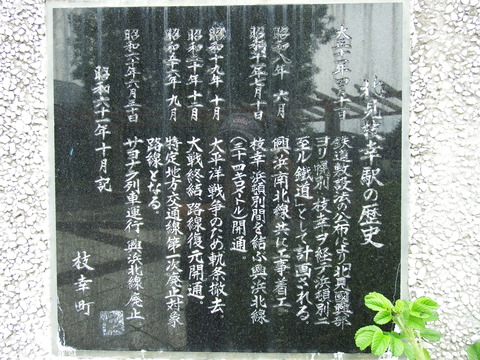 北見枝幸駅の歴史
大正十一年四月十日 鉄道敷設法が公布により「北見國興部
ヨリ幌別、枝幸ヲ経テ浜頓別ニ
至ル鐵道」として計画される。
昭和八年 六月 興浜南北線、共に工事着工
昭和十一年七月十日 枝幸 浜頓別間を結ぶ興浜北線
(三十四キロメートル)開通。
昭和十九年 十月 太平洋戦争のため軌条撤去。
昭和二十年 十二月 大戦終結 路線復元開通。
昭和五十六年 九月 特定地方交通線第一次廃止対象
路線となる
昭和六十年六月三十日 サヨナラ列車運行 興浜北線廃止
昭和六十一年十月記
枝幸町